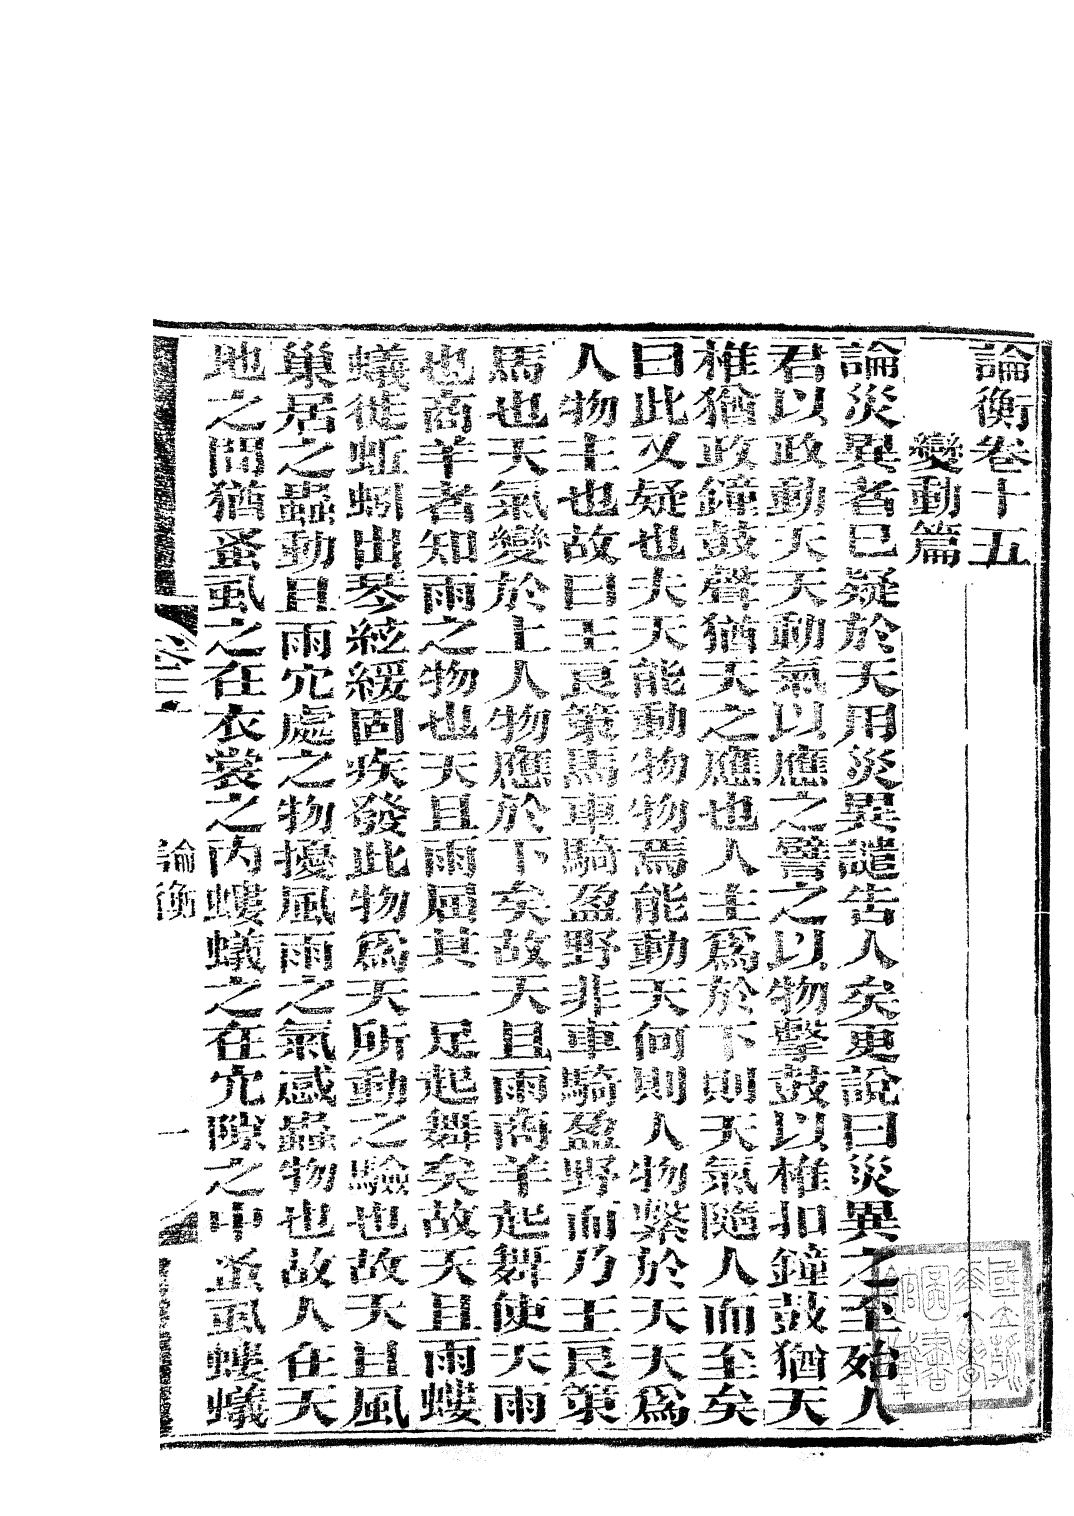 論衡卷十五
變動篇
論災異者已疑於天用災異譴告人矣更說曰災異之至殆人
君以政動天天動氣以應之譬之以物擊鼓以椎扣鐘鼓猶天
椎猶政鐘鼓聲猶天之應也人主為於下則天氣隨人而至矣
曰此又疑也夫天能動物物焉能動天何則人物繫於天天為
人物主也故曰王良策馬車騎盈野非車騎盈野而乃王良策
馬也天氣變於上人物應於下矣故天且雨商羊起舞使天雨
也商羊者知雨之物也天且雨屈其一足起舞矣故天且雨螻
蟻徙蚯蚓出琴絃緩固疾發此物為天所動之驗也故天且風
巢居之蟲動且雨穴處之物擾風雨之氣感蟲物也故人在天
地之間猶蚤虱之在衣裳之內螻蟻之在穴隙之中蚤虱螻蟻
論衡
一